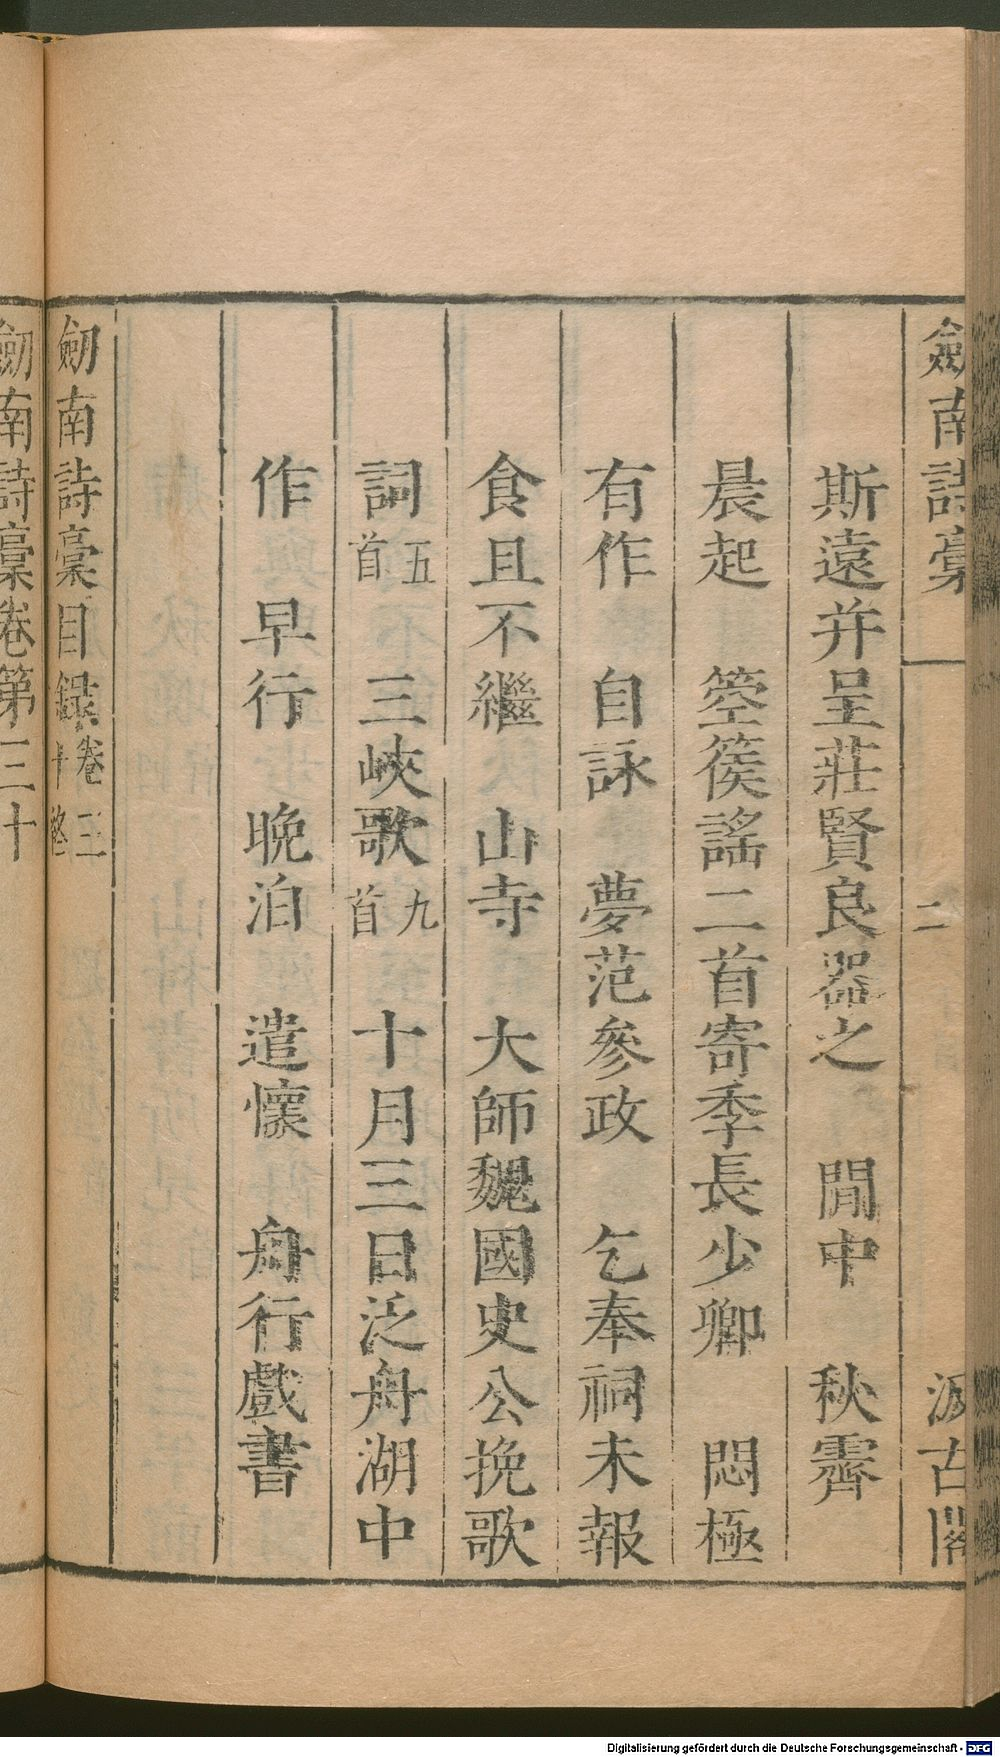 劔南詩藁 二 汲古閣
斯遠并呈莊賢良器之 閒中 秋霽
晨起 箜篌謠二首寄季長少卿 悶極
有作 自詠 夢范參政 乞奉祠未報
食且不繼 山寺 大師魏國史公挽歌
詞五首 三峽歌九首 十月三日泛舟湖中
作 早行 晚泊 遣懷 舟行戲書
劔南詩藁目錄卷三十終
劔南詩藁卷第三十
Digitalisierung gefördert durch die Deutsche Forschungsgemeinschaft - DFG